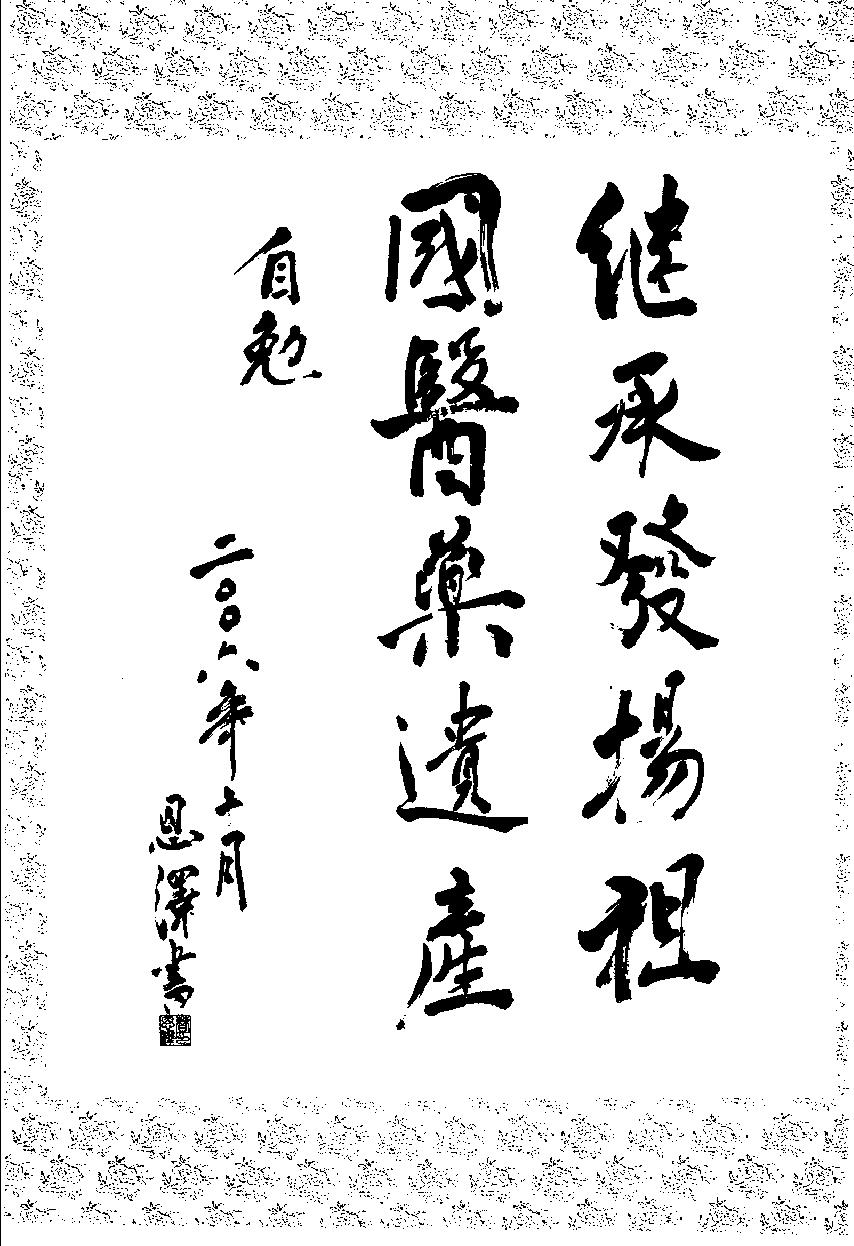 继承發揚祖
國醫藥遺產
自勉
二〇〇六年十月
恩澤書